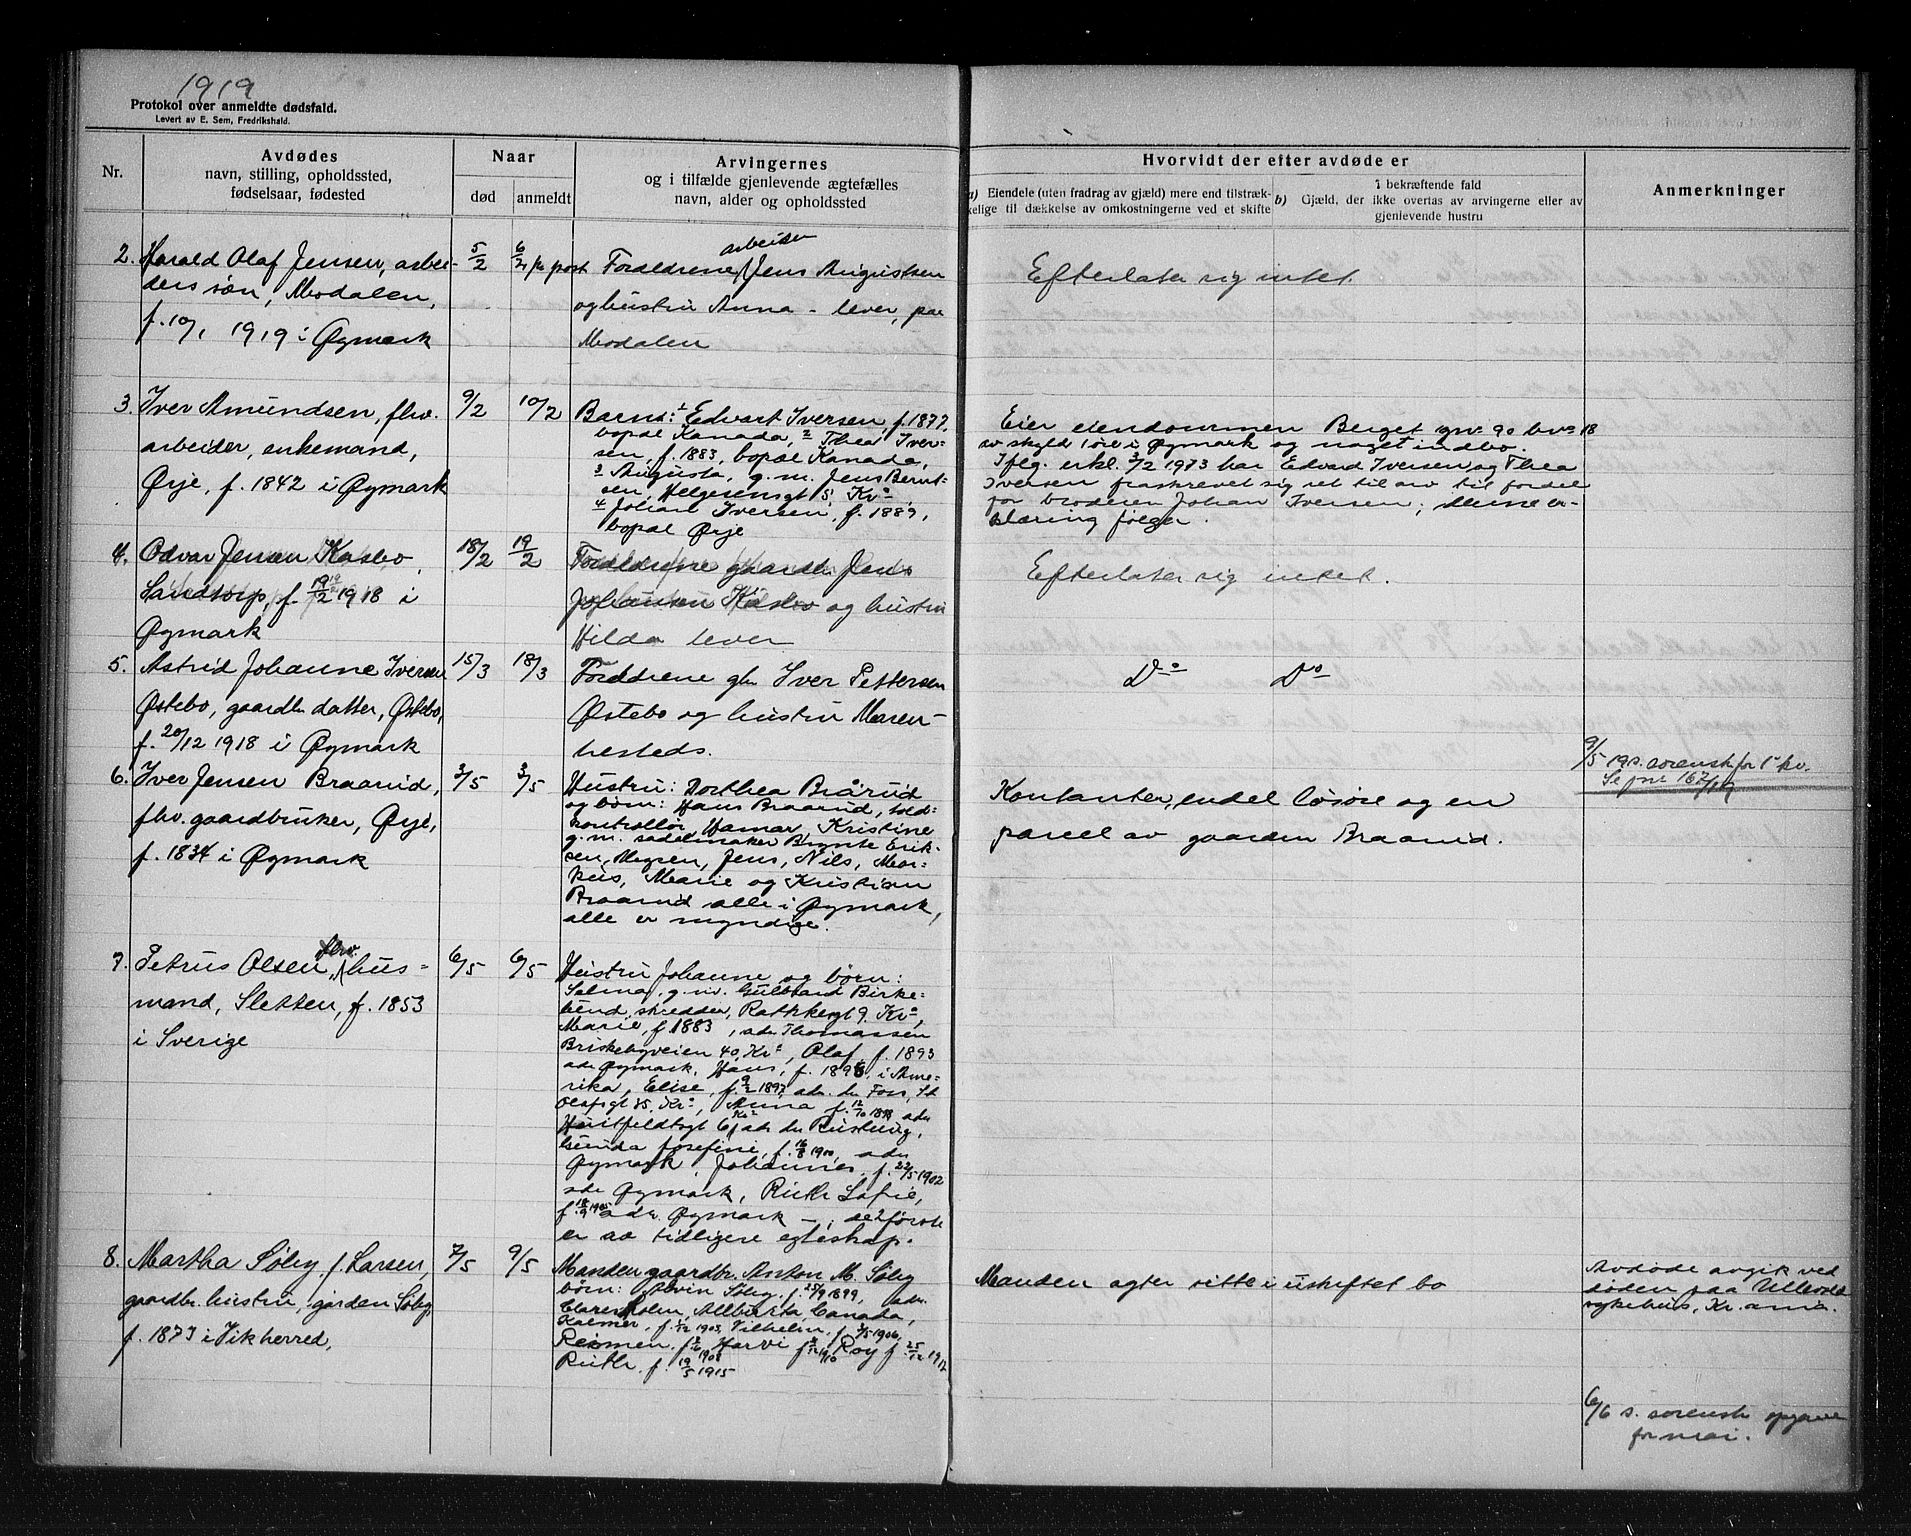 1919
Protokol over anmeldte dødsfald.
Levert av E. Sem, Fredrikshald.
Nr.
Avdødes
navn, stilling, opholdssted,
fødselsaar, fødested
Naar
død
anmeldt
Arvingernes
og i tilfælde gjenlevende ægtefælles
navn, alder og opholdssted
Hvorvidt der efter avdøde er
a) Eiendele (uten fradrag av gjæld) mere end tilstræk-
kelige til dækkelse av omkostningerne ved et skifte
b)
I bekræftende fald
Gjæld, der ikke overtas av arvingerne eller av
gjenlevende hustru
Anmerkninger
2. Harald Olaf Jensen, arbei-
ders søn, Modalen,
f. 10/1 1919 i Øymark
5/2
6/2 pr post
arbeider
Forældrene Jens Augustsen
og hustru Anna - lever, paa
Modalen
Efterlater sig intet.
3. Iver Amundsen, fhv.
arbeider, enkemand,
Ørje, f. 1842 i Øymark
9/2
10/2
Barn: 1 Edvart Iversen, f. 1877,
bopæl Kanada, 2 Thea Iver-
sen, f. 1883, bopæl Kanada,
3 Augusta, g.m. Jens Bernt-
sen, Helgesensgt 5, Kr.a
4 Johan Iversen, f. 1889,
bopæl Ørje
Eier eiendommen Berget gnr. 90 brn 18
av skyld 1 øre i Øymark og noget indbo.
Iflg. erkl. 3/2 1973 har Edvard Iversen og Thea
Iversen fraskrevet sig ret til arv til fordel
for broderen Johan Iversen; denne er-
klæring følger.
4. Odvar Jensen Kasbo,
Sandtorp, f. 19/12 1918 i
Øymark
18/2
19/2
Forældrene gaardbr. Jens
Johansen Kasbo og hustru
Hilda lever
Efterlater sig intet.
5. Astrid Johanne Iversen
Østebo, gaardbr. datter, Østebo,
f. 20/12 1918 i Øymark
15/3
18/3
Forældrene gbr Iver Pettersen
Østebo og hustru Maren -
hersteds.
Do Do
9/5 19 s. sorensk for 1' kv.
Se jne 167/19
6. Iver Jensen Braarud,
fhv. gaardbruker, Ørje,
f. 1834 i Øymark
3/5
3/5
Hustru: Dorthea Brårud
og børn: Hans Braarud, told-
kontrollør, Hamar, Kristine
g.m. sadelmaker Brynte Erik-
sen, Mysen, Jens, Nils, Mar-
kus, Marie og Kristian
Braarud alle i Øymark,
alle er myndige.
Kontanter, endel løsøre og en
parcel av gaarden Braarud.
7. Petrus Olsen, fhv. hus-
mand, Sletten, f. 1853
i Sverige
6/5
6/5
Hustru Johanne og børn:
Selma, g.m. Gulbrand Birke-
lund, skrædder, Rathkesgt 9. Kr.a,
Marie, f. 1883, adr. Thomassen
Briskebyveien 40, Kr.a, Olaf, f. 1893
adr Øymark, Hans, f. 1896, i Ame-
rika, Elise, f. 9/2 1897, adr. do Foss, St
Olafsgt 35, Kr.a, Anna f. 12/10 1898 adr
Huitfeldtsgt 6 Kr.a adr. do
Gunda Josefine, f. 16/8 1900, adr
Øymark, Johannes, f. 22/5 1902
adr Øymark, Ruth Sofie,
f. 18/9 1905 adr. Øymark -, de 2 første
er av tidligere egteskap.
8. Martha Søby, f. Larsen,
gaardbr. hustru, gården Søby,
f. 1873 i Vik herred,
7/5
9/5
Manden gaardbr. Anton M. Søby
børn: Alvin Søby f. 25/9 1899, adr.
Claresholm, Allberta, Canada,
Kalmer, f. 1/12 1903, Vilhelm f. 3/5 1906,
Reimen, f. 2/6 1908 Harvi f. 1910 Roy f. 25/12 1912
Ruth f. 19/5 1915
Manden agter sitte i uskiftet bo
Avdøde avgik ved
døden paa Ullevold
sykehus, Kr.ania.
6/6 s. sorensk opgave
for mai.